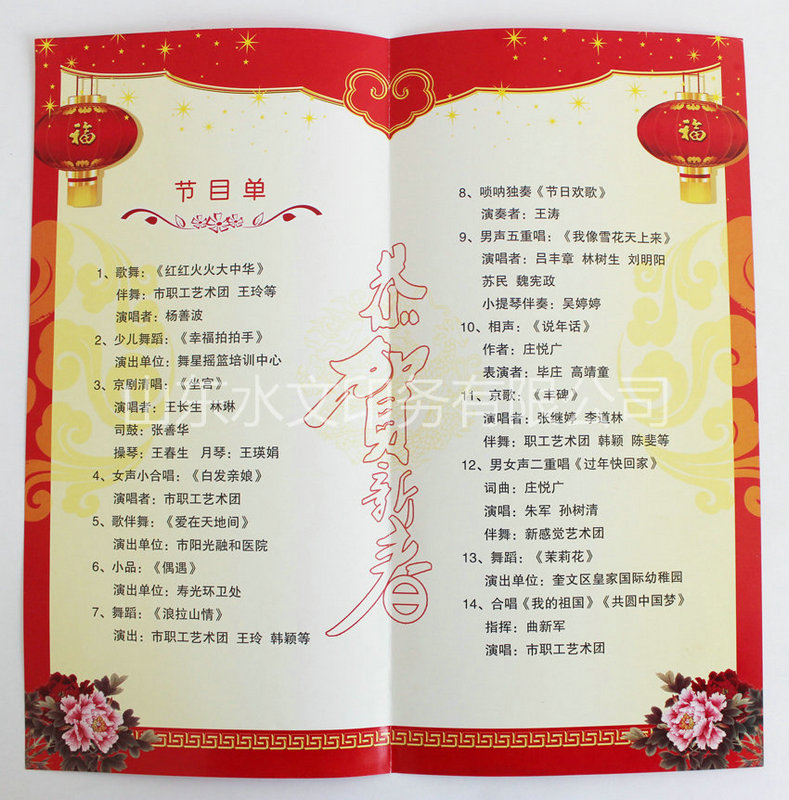 福
节目单
1、歌舞：《红红火火大中华》
伴舞：市职工艺术团 王玲等
演唱者：杨善波
2、少儿舞蹈：《幸福拍拍手》
演出单位：舞星摇篮培训中心
3、京剧清唱：《坐宫》
演唱者：王长生 林琳
司鼓：张善华
操琴：王春生 月琴：王瑛娟
4、女声小合唱：《白发亲娘》
演唱者：市职工艺术团
5、歌伴舞：《爱在天地间》
演出单位：市阳光融和医院
6、小品：《偶遇》
演出单位：寿光环卫处
7、舞蹈：《浪拉山情》
演出：市职工艺术团 王玲 韩颖等
恭贺新春
福
8、唢呐独奏《节日欢歌》
演奏者：王涛
9、男声五重唱：《我像雪花天上来》
演唱者：吕丰章 林树生 刘明阳
苏民 魏宪政
小提琴伴奏：吴婷婷
10、相声：《说年话》
作者：庄悦广
表演者：毕庄 高靖童
11、京歌：《丰碑》
演唱者：张继婷 李道林
伴舞：职工艺术团 韩颖 陈斐等
12、男女声二重唱《过年快回家》
词曲：庄悦广
演唱：朱军 孙树清
伴舞：新感觉艺术团
13、舞蹈：《茉莉花》
演出单位：奎文区皇家国际幼稚园
14、合唱《我的祖国》《共圆中国梦》
指挥：曲新军
演唱：市职工艺术团
山东水文印务有限公司